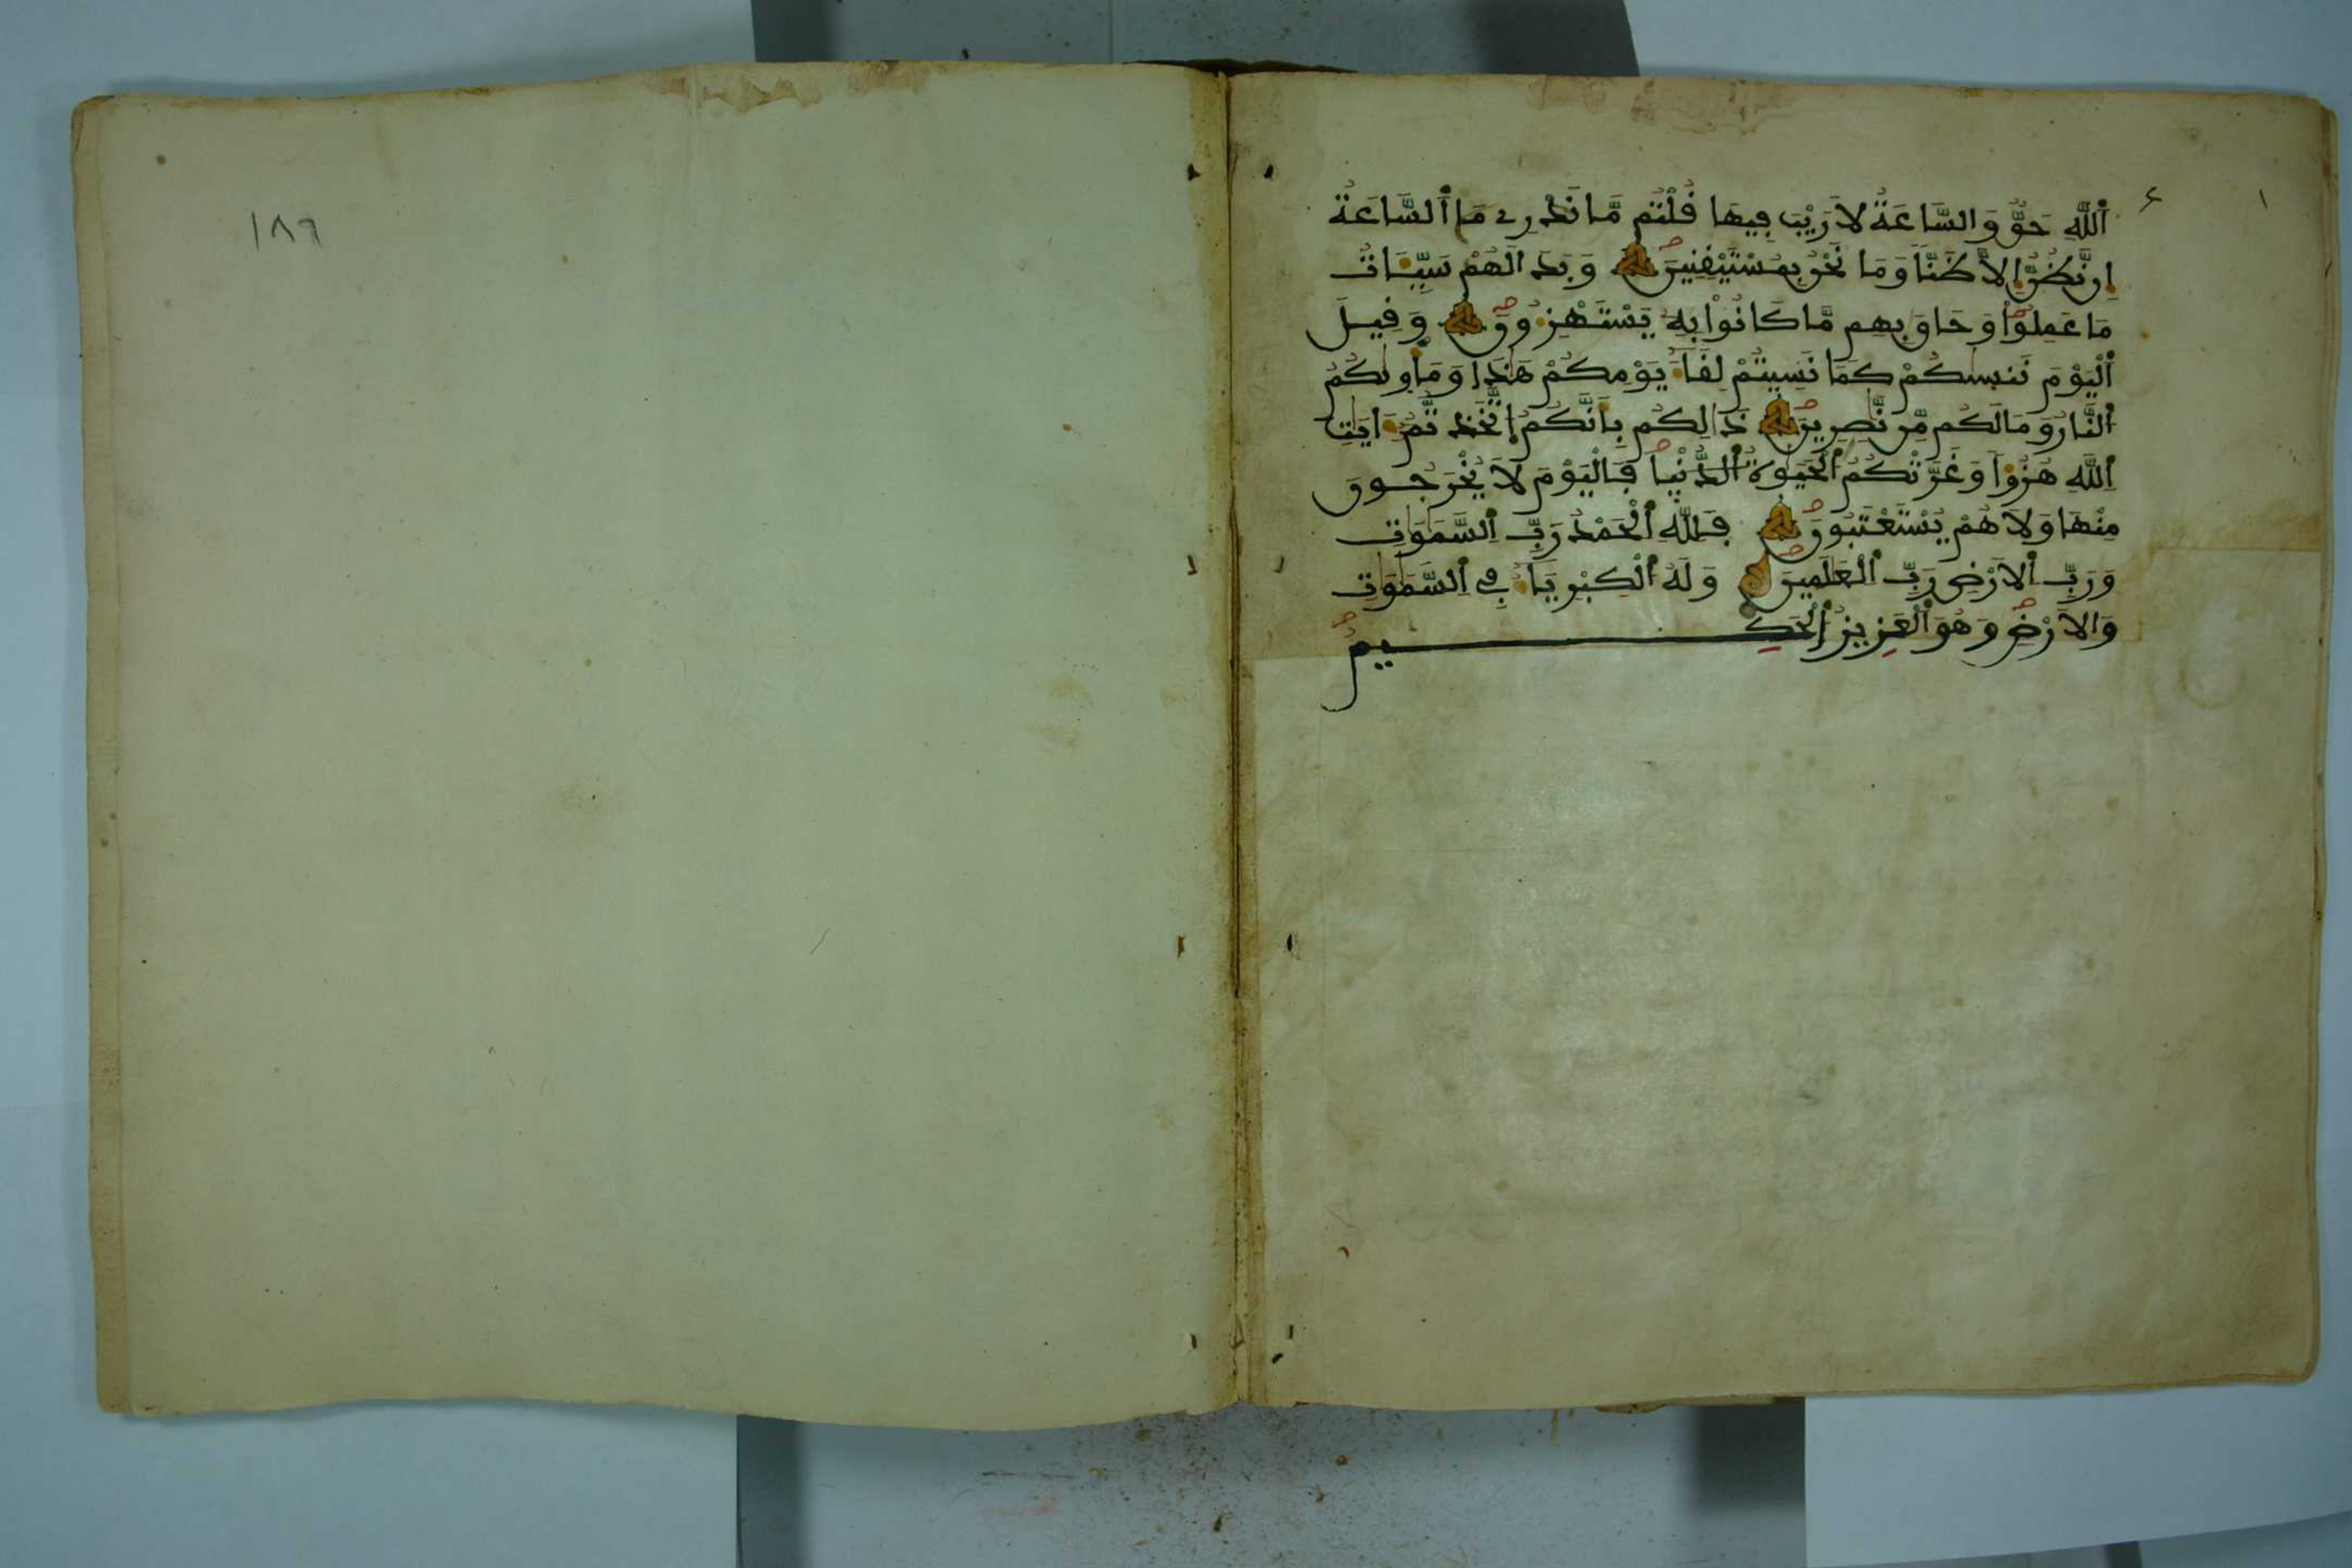 اَ۬للَّهِ حَقٌّ وَالسَّاعَةُ لَا رَيْبَ فِيهَا قُلْتُم مَّا نَدْرِے مَا اَ۬لسَّاعَةُ
إِن نَّظُنُّ إِلَّا ظَنّاٗ وَمَا نَحْنُ بِمُسْتَيْقِنِينَ وَبَدَا لَهُمْ سَيِّـَٔاتُ
مَا عَمِلُواْ وَحَاقَ بِهِم مَّا كَانُواْ بِهِۦ يَسْتَهْزِءُونَ وَقِيلَ
اَ۬لْيَوْمَ نَنسٜيٰكُمْ كَمَا نَسِيتُمْ لِقَآءَ يَوْمِكُمْ هَٰذَا وَمَأْوٜيٰكُمُ
اُ۬لنَّارُ وَمَا لَكُم مِّن نَّٰصِرِينَ ذَٰلِكُم بِأَنَّكُمُ اُ۪تَّخَذتُّمُۥٓ ءَايَٰتِ
اِ۬للَّهِ هُزُؤاٗ وَغَرَّتْكُمُ اُ۬لْحَيَوٰةُ اُ۬لدُّنْيَا فَالْيَوْمَ لَا يُخْرَجُونَ
مِنْهَا وَلَا هُمْ يُسْتَعْتَبُونَ فَلِلهِ اِ۬لْحَمْدُ رَبِّ اِ۬لسَّمَٰوَٰتِ
وَرَبِّ اِ۬لْأَرْضِ رَبِّ اِ۬لْعَٰلَمِينَ وَلَهُ اُ۬لْكِبْرِيَآءُ فِے اِ۬لسَّمَٰوَٰتِ
وَالْأَرْضِ وَهُوَ اَ۬لْعَزِيزُ اُ۬لْحَكِيمُ
١٨٩